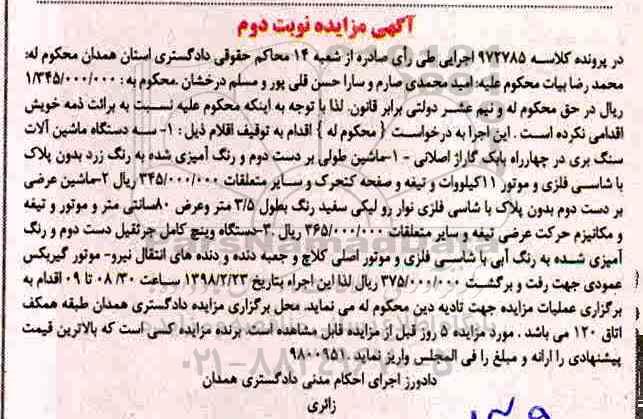 آگهی مزایده نوبت دوم
در پرونده کلاسه ۹۷۲۷۸۵ اجرایی طی رای صادره از شعبه ۱۴ محاکم حقوقی دادگستری استان همدان محکوم له:
محمد رضا بیات محکوم علیه: امید محمدی صارم و سارا حسن قلی پور و مسلم درخشان .محکوم به: ۱/۳۴۵/۰۰۰/۰۰۰
ریال در حق محکوم له و نیم عشر دولتی برابر قانون. لذا با توجه به اینکه محکوم علیه نسبت به برائت ذمه خویش
اقدامی نکرده است . این اجرا به درخواست { محکوم له } اقدام به توقیف اقلام ذیل : ۱- سه دستگاه ماشین آلات
سنگ بری در چهارراه بابک گاراژ اصلانی - ۱-ماشین طولی بر دست دوم و رنگ آمیزی شده به رنگ زرد بدون پلاک
با شاسی فلزی و موتور ۱۱کیلووات و تیغه و صفحه کتحرک و سایر متعلقات ۳۴۵/۰۰۰/۰۰۰ ریال ۲-ماشین عرضی
بر دست دوم بدون پلاک با شاسی فلزی نوار رو لیکی سفید رنگ بطول ۳/۵ متر وعرض ۸۰سانتی متر و موتور و تیغه
و مکانیزم حرکت عرضی تیغه و سایر متعلقات ۳۶۵/۰۰۰/۰۰۰ ریال .۳-دستگاه وینچ کامل جرثقیل دست دوم و رنگ
آمیزی شده به رنگ آبی با شاسی فلزی و موتور اصلی کلاچ و جعبه دنده و دنده های انتقال نیرو- موتور گیربکس
عمودی جهت رفت و برگشت ۳۷۵/۰۰۰/۰۰۰ ریال لذا این اجراء بتاریخ ۱۳۹۸/۲/۲۳ ساعت ۰۸/۳۰ تا ۰۹ اقدام به
برگزاری عملیات مزایده جهت تادیه دین محکوم له می نماید. محل برگزاری مزایده دادگستری همدان طبقه همکف
اتاق ۱۲۰ می باشد . مورد مزایده ۵ روز قبل از مزایده قابل مشاهده است. برنده مزایده کسی است که بالاترین قیمت
پیشنهادی را ارائه و مبلغ را فی المجلس واریز نماید .۹۸۰۰۹۵۱
دادورز اجرای احکام مدنی دادگستری همدان
زائری